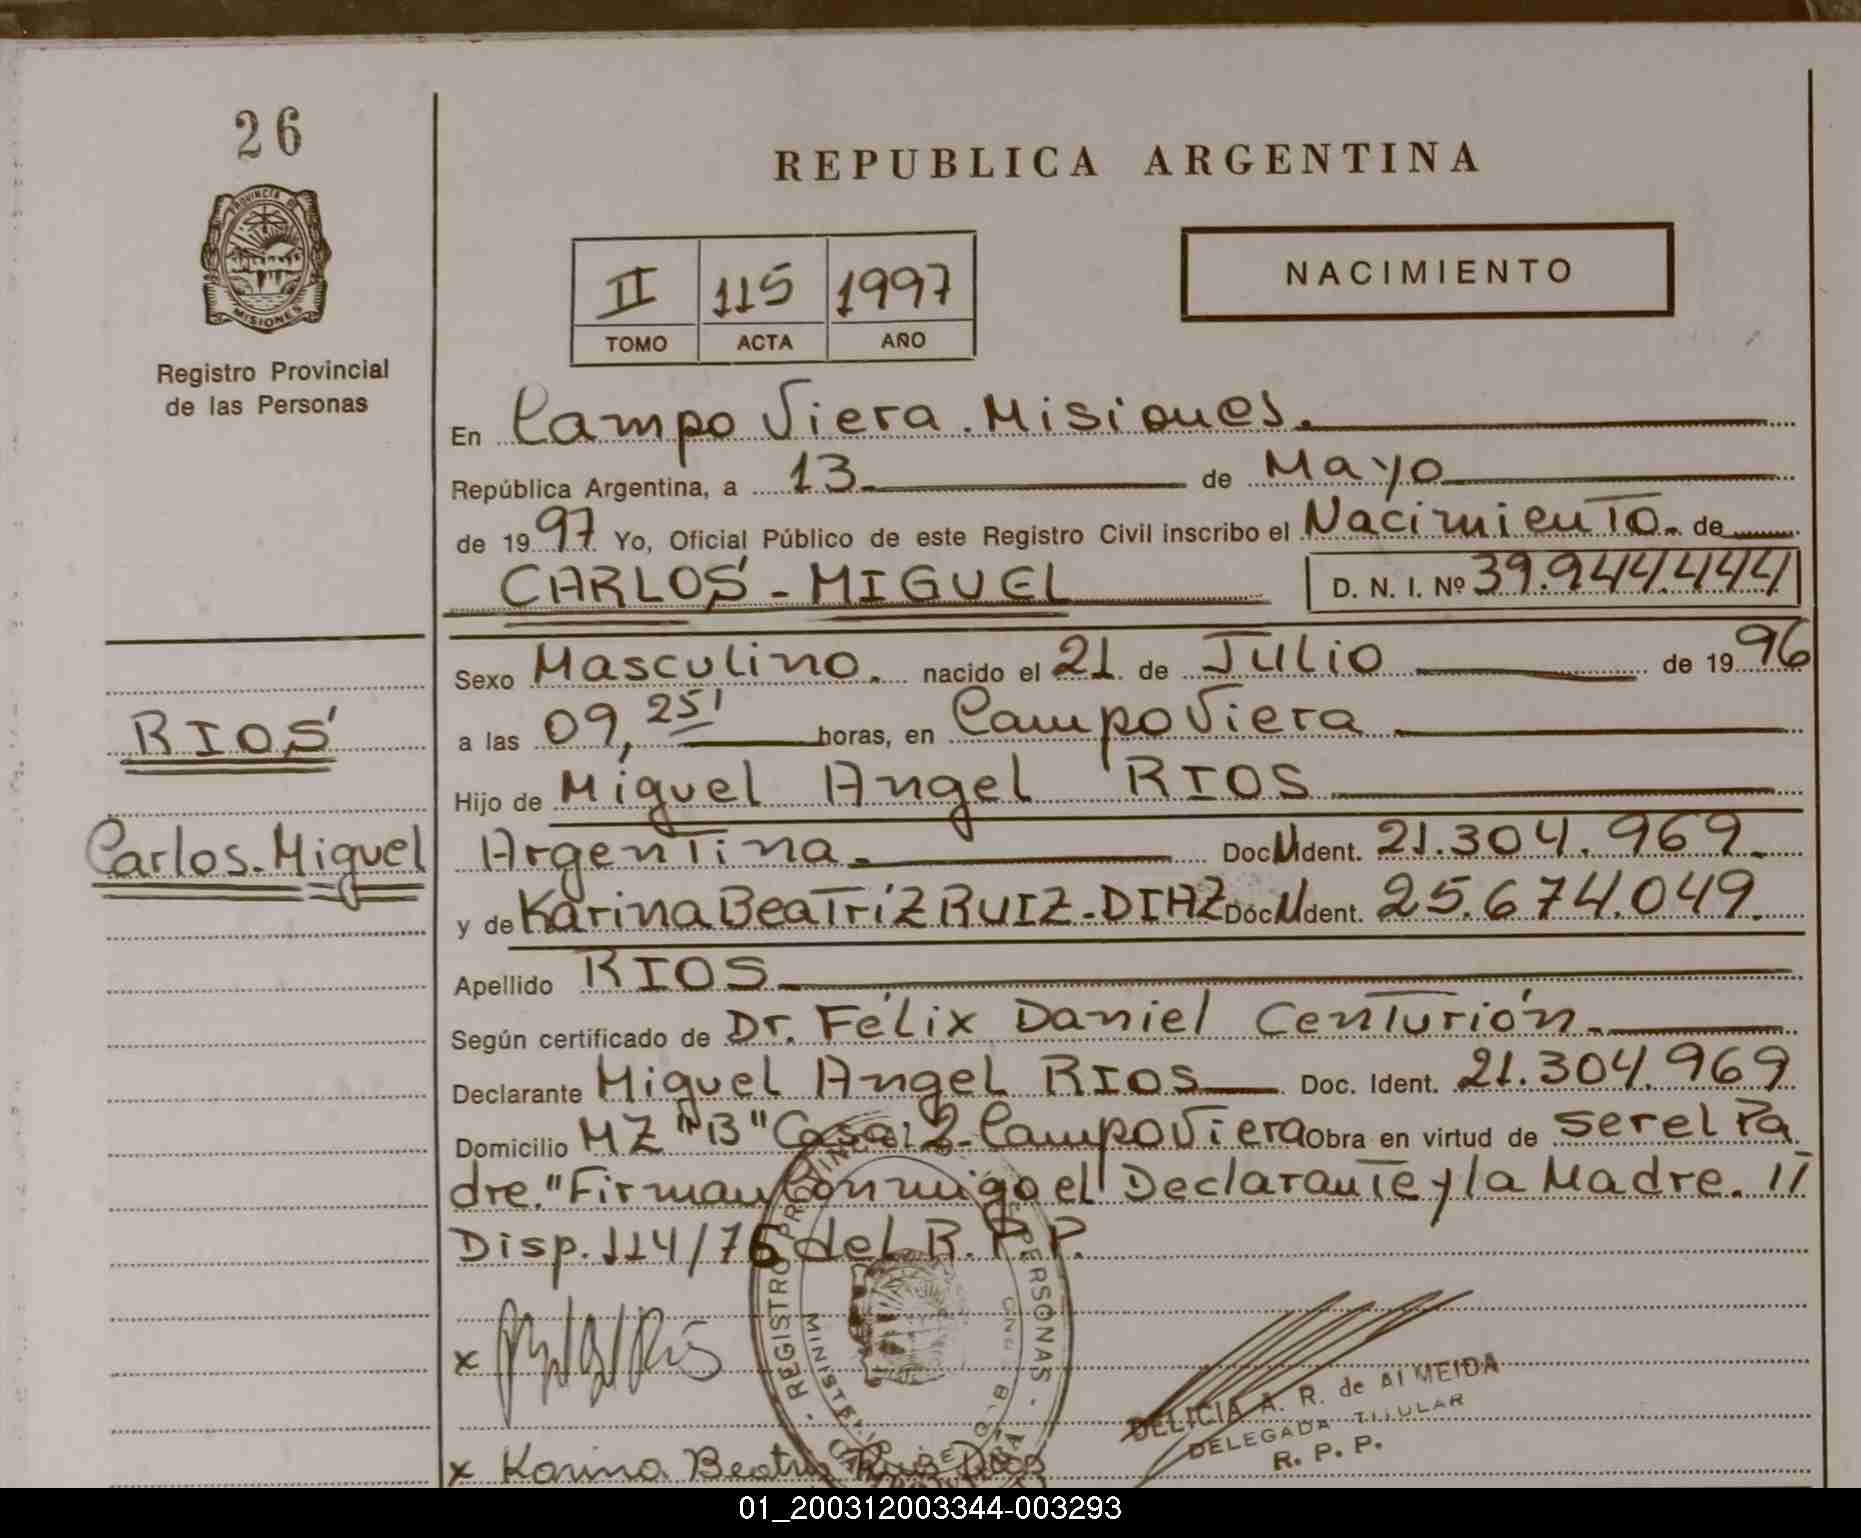 26
PROVINCIA DE
MISIONES
Registro Provincial
de las Personas
REPUBLICA ARGENTINA
II 115 1997
TOMO ACTA AÑO
NACIMIENTO
En Campo Viera. Misiones.
República Argentina, a 13 de Mayo
de 1997 Yo, Oficial Público de este Registro Civil inscribo el Nacimiento. de
CARLOS - MIGUEL D. N. I. Nº 39.944.444
Sexo Masculino. nacido el 21 de Julio de 1996
RIOS
a las 09,25' horas, en Campo Viera
Hijo de Miguel Angel RIOS
Carlos. Miguel
Argentina. Doc. Ident. 21.304.969.
y de Karina Beatríz RUIZ-DIAZ Doc. Ident. 25.674.049.
Apellido RIOS
Según certificado de Dr. Félix Daniel Centurión.
Declarante Miguel Angel RIOS Doc. Ident. 21.304.969
Domicilio MZ "B" Casa: 2- Campo Viera Obra en virtud de ser el Pa
dre." Firman Conmigo el Declarante y la Madre. II
Disp. 114/76 del R.P.P.
REGISTRO PROVINCIAL PERSONAS
x
DELICIA A. R. de ALMEIDA
DELEGADA TITULAR
R. P. P.
x Karina Beatriz Ruiz Diaz
01_200312003344-003293